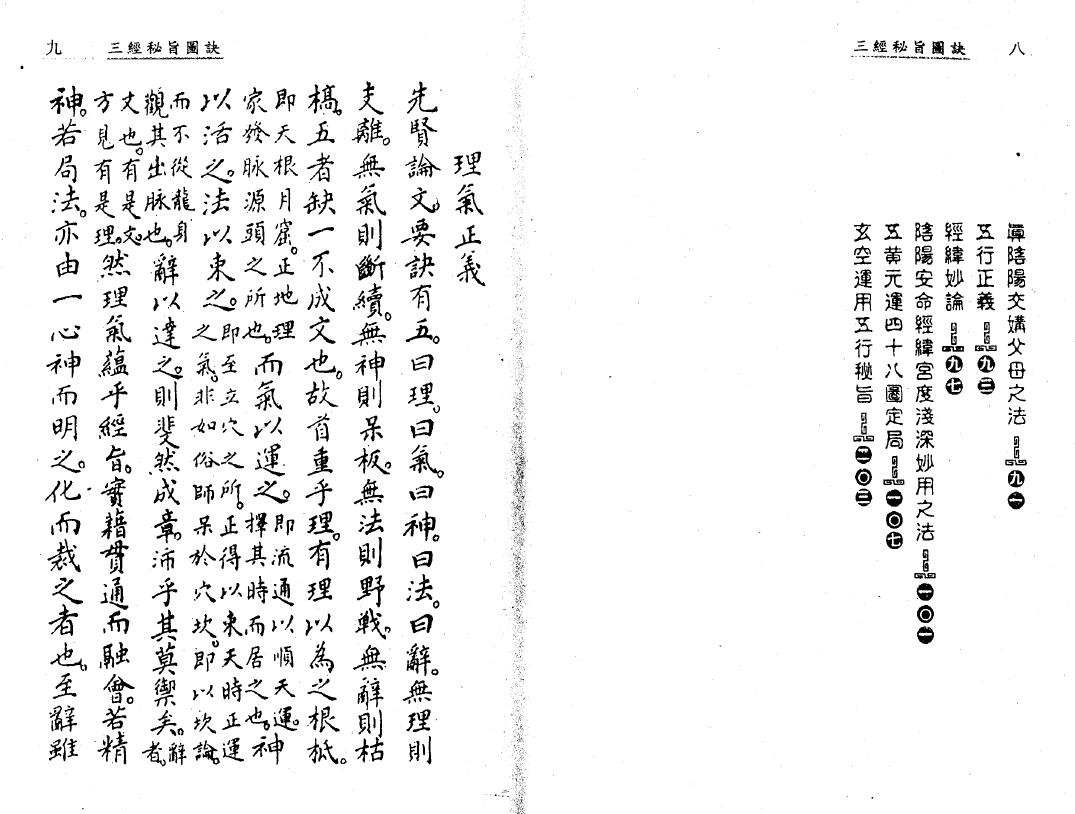 三經秘旨圖訣 八
眞陰陽交媾父母之法 九一
五行正義 九三
經緯妙論 九七
陰陽安命經緯宮度淺深妙用之法 一〇一
五黄元運四十八圖定局 一〇七
玄空運用五行秘旨 二〇三
九 三經秘旨圖訣
理氣正義
先賢論文。要訣有五。曰理。曰氣。曰神。曰法。曰辭。無理則
支離。無氣則斷續。無神則呆板。無法則野戰。無辭則枯
槁。五者缺一不成文也。故首重乎理。有理以為之根柢。
即天根月窟。正地理家發脉源頭之所也。而氣以運之。即流通以順天運。擇其時而居之也。神
以活之。法以束之。即至立穴之所。正得以束天時正運之氣。非如俗師呆於穴坎。即以坎論。
而不從龍身觀其出脉也。辭以達之。則斐然成章。沛乎其莫禦矣。辭者。
文也。有是文。方見有是理。然理氣蘊乎經旨。實藉貫通而融會。若精
神。若局法。亦由一心神而明之。化而裁之者也。至辭雖